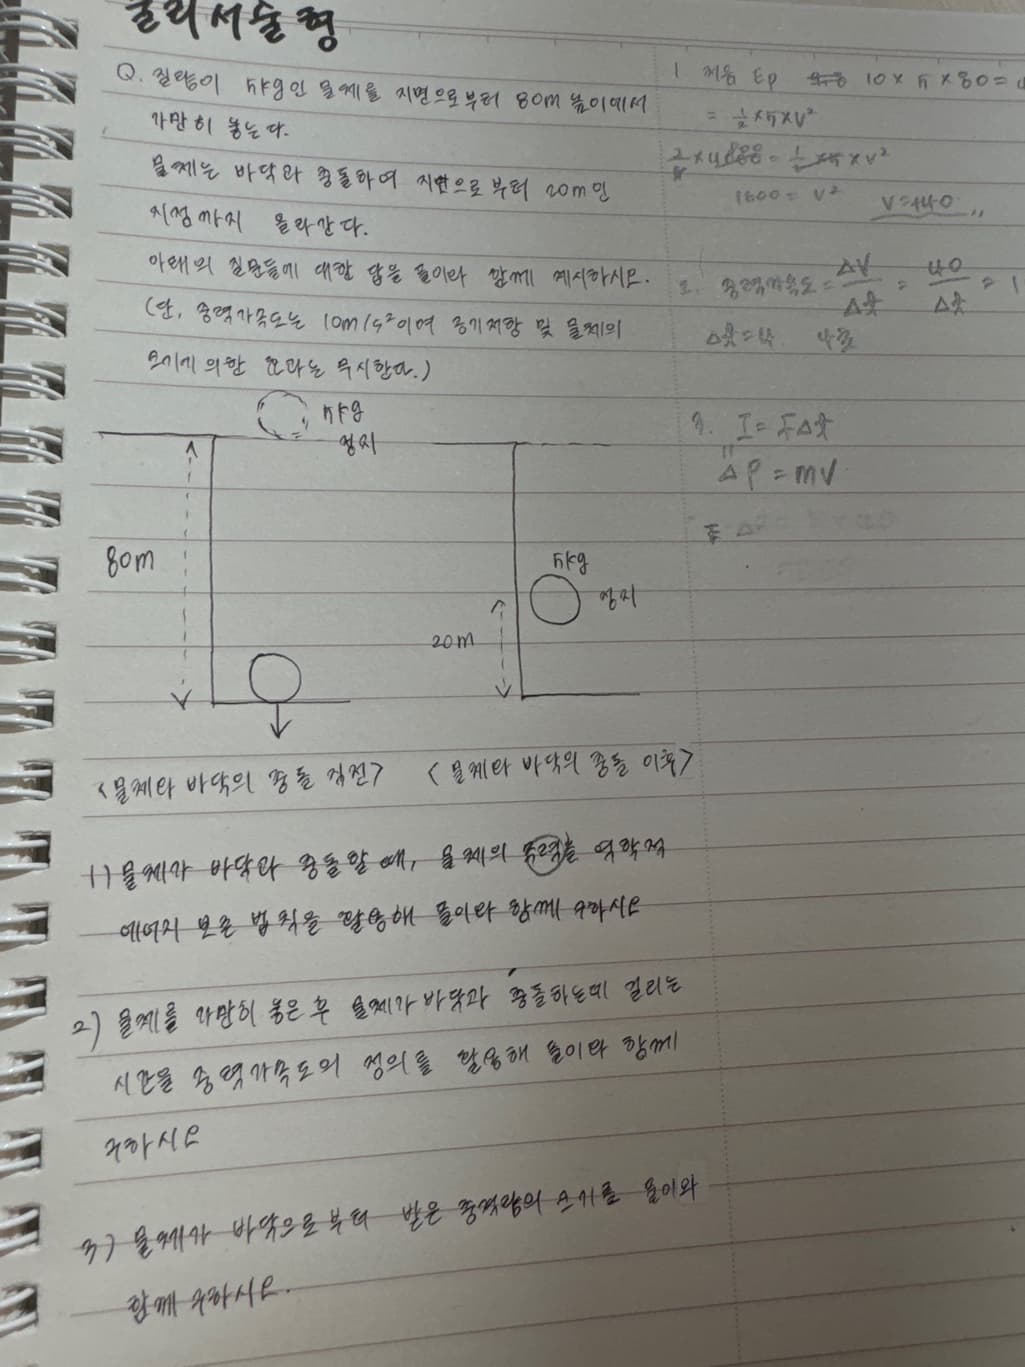 물리서술형
Q. 질량이 5kg인 물체를 지면으로부터 80m 높이에서
가만히 놓는다.
물체는 바닥과 충돌하여 지면으로부터 20m인
지점까지 올라간다.
아래의 질문들에 대한 답을 풀이와 함께 제시하시오.
(단, 중력가속도는 10m/s²이며 공기저항 및 물체의
크기에 의한 효과는 무시한다.)
5kg
정지
80m
5kg
정지
20m
<물체와 바닥의 충돌 직전>
<물체와 바닥의 충돌 이후>
1) 물체가 바닥과 충돌할 때, 물체의 속력을 역학적
에너지 보존 법칙을 활용해 풀이와 함께 구하시오
2) 물체를 가만히 놓은 후 물체가 바닥과 충돌하는데 걸리는
시간을 중력가속도의 정의를 활용해 풀이와 함께
구하시오
3) 물체가 바닥으로부터 받은 충격량의 크기를 풀이와
함께 구하시오.
1 처음 Ep 10×5×80=4
= ½×5×V²
1600 = V²
V=+40
2. 중력가속도 = ΔV/Δt = 40/Δt = 1
Δt=4. 4초
3. I = FΔt
Δp = mV